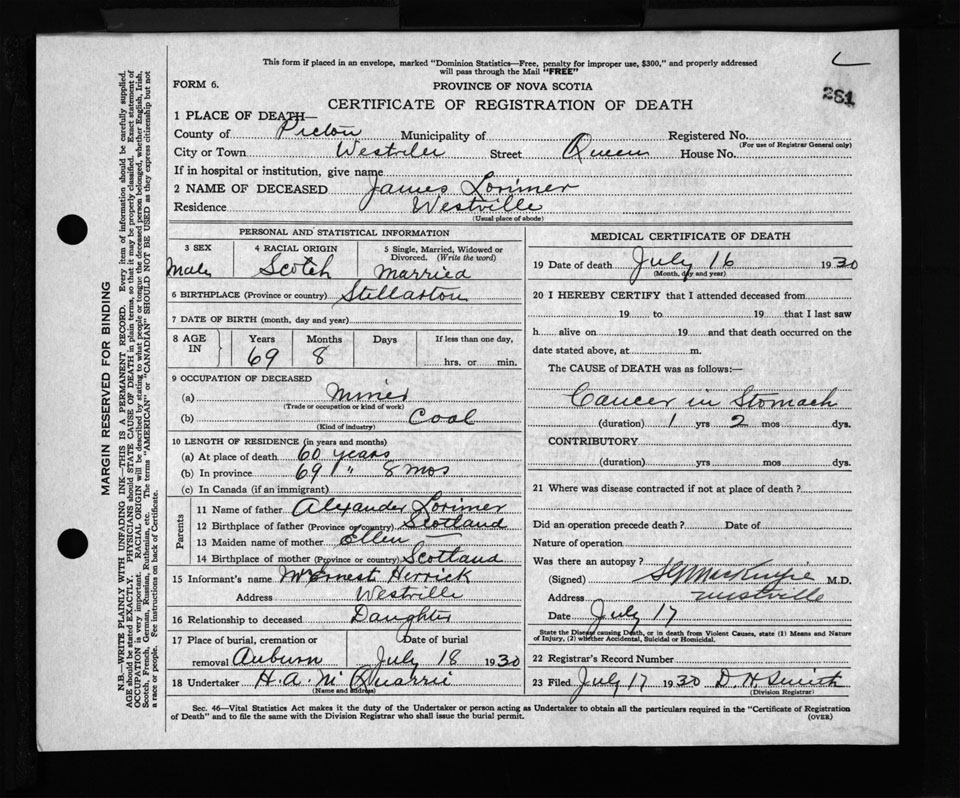 This form if placed in an envelope, marked "Dominion Statistics—Free, penalty for improper use, $300," and properly addressed
will pass through the Mail "FREE"
FORM 6.
PROVINCE OF NOVA SCOTIA
281
CERTIFICATE OF REGISTRATION OF DEATH
1 PLACE OF DEATH—
County of Pictou Municipality of Registered No.
(For use of Registrar General only)
City or Town Westville Street Queen House No.
If in hospital or institution, give name
2 NAME OF DECEASED James Lorimer
Residence Westville
(Usual place of abode)
PERSONAL AND STATISTICAL INFORMATION
3 SEX 4 RACIAL ORIGIN 5 Single, Married, Widowed or
Divorced. (Write the word)
Male Scotch Married
6 BIRTHPLACE (Province or country) Stellarton
7 DATE OF BIRTH (month, day and year)
8 AGE IN Years Months Days If less than one day,
69 8 hrs. or min.
9 OCCUPATION OF DECEASED
(a) Miner
(Trade or occupation or kind of work)
(b) Coal
(Kind of industry)
10 LENGTH OF RESIDENCE (in years and months)
(a) At place of death 60 years
(b) In province 69 " 8 mos
(c) In Canada (if an immigrant)
Parents
11 Name of father Alexander Lorimer
12 Birthplace of father (Province or country) Scotland
13 Maiden name of mother Ellen —
14 Birthplace of mother (Province or country) Scotland
15 Informant's name Mrs Ernest Herrick
Address Westville
16 Relationship to deceased Daughter
17 Place of burial, cremation or Date of burial
removal Auburn July 18 1930
18 Undertaker H. A. McQuarrie
(Name and address)
MEDICAL CERTIFICATE OF DEATH
19 Date of death July 16 1930
(Month, day and year)
20 I HEREBY CERTIFY that I attended deceased from
19 to 19 that I last saw
h alive on 19 and that death occurred on the
date stated above, at m.
The CAUSE of DEATH was as follows:—
Cancer in Stomach
(duration) 1 yrs 2 mos dys.
CONTRIBUTORY
(duration) yrs mos dys.
21 Where was disease contracted if not at place of death?
Did an operation precede death? Date of
Nature of operation
Was there an autopsy?
(Signed) MacKenzie M.D.
Address Westville
Date July 17
State the Disease causing Death, or in death from Violent Causes, state (1) Means and Nature
of Injury, (2) whether Accidental, Suicidal or Homicidal.
22 Registrar's Record Number
23 Filed July 17 1930 D. H. Smith
(Division Registrar)
Sec. 46—Vital Statistics Act makes it the duty of the Undertaker or person acting as Undertaker to obtain all the particulars required in the "Certificate of Registration
of Death" and to file the same with the Division Registrar who shall issue the burial permit. (OVER)
MARGIN RESERVED FOR BINDING
N.B.—WRITE PLAINLY WITH UNFADING INK—THIS IS A PERMANENT RECORD. Every item of information should be carefully supplied.
AGE should be stated EXACTLY. PHYSICIANS should STATE CAUSE OF DEATH in plain terms, so that it may be properly classified. Exact statement of
OCCUPATION is very important. RACIAL ORIGIN will be described by stating to what people or tongue the deceased person belonged, whether English, Irish,
Scotch, French, German, Russian, Ruthenian, etc. The terms "AMERICAN" or "CANADIAN" SHOULD NOT BE USED as they express citizenship but not
a race or people. See instructions on back of Certificate.